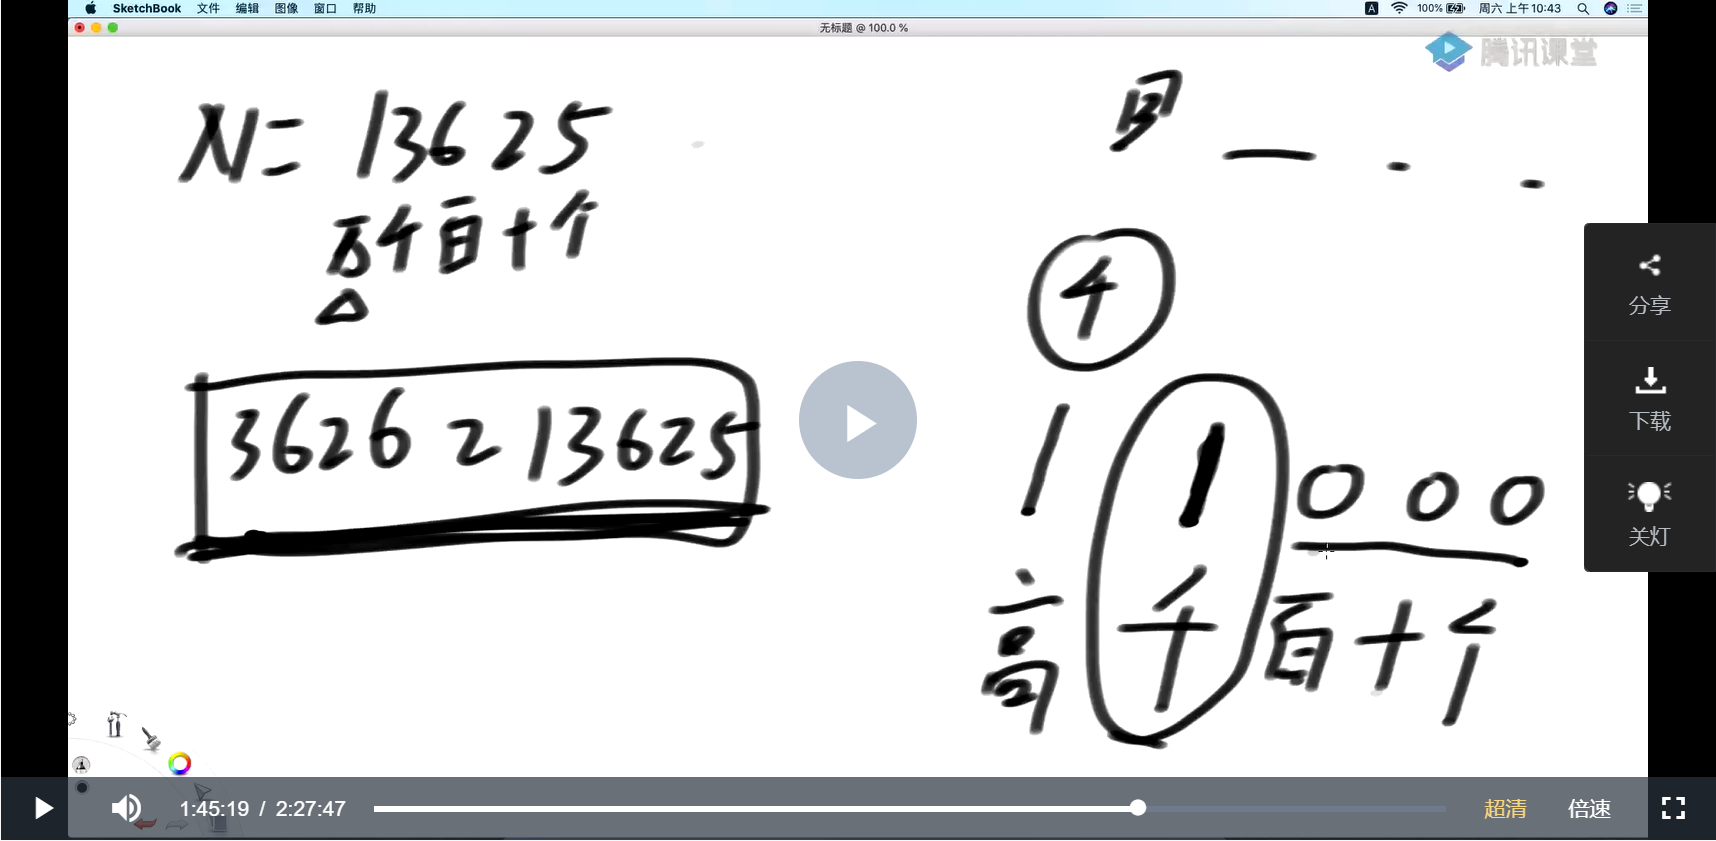 SketchBook 文件 编辑 图像 窗口 帮助
A 100% 周六上午10:43
无标题 @ 100.0 %
腾讯课堂
N= 13625
万千百十个
3626 2 13625
4
1 1 0 0 0
高 千 百 十 个
分享
下载
关灯
1:45:19 / 2:27:47
超清 倍速